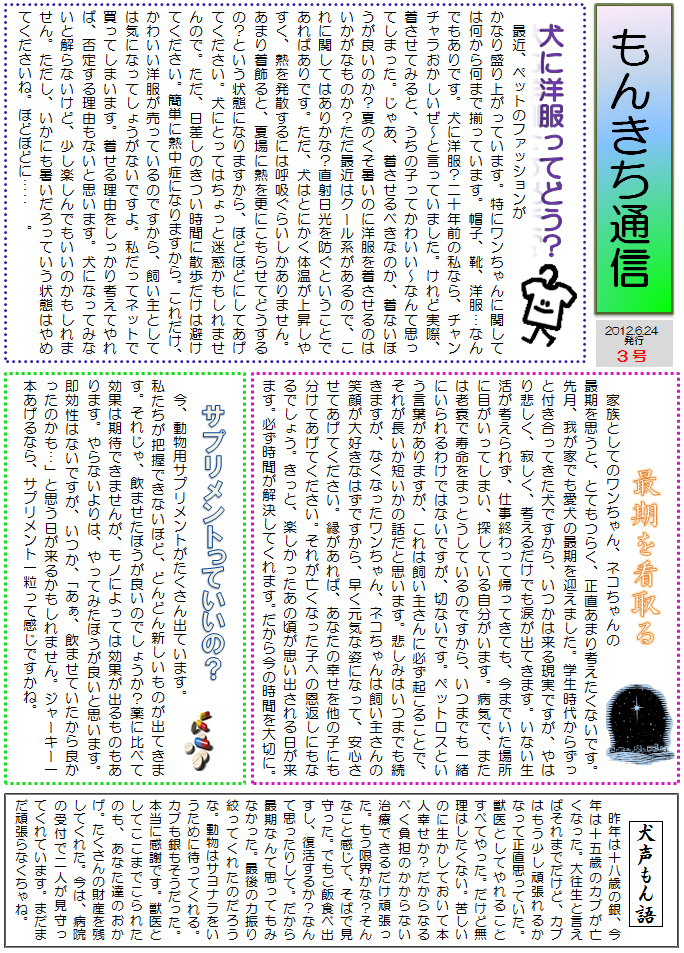 もんきち通信
2012.6.24
発行
3号
犬に洋服ってどう?
最近、ペットのファッションが
かなり盛り上がっています。特にワンちゃんに関して
は何から何まで揃っています。帽子、靴、洋服…なん
でもありです。犬に洋服?二十年前の私なら、チャン
チャラおかしいぜ~と言っていました。けれど実際、
着させてみると、うちの子ってかわいい~なんて思っ
てしまった。じゃあ、着させるべきなのか、着ないほ
うが良いのか?夏のくそ暑いのに洋服を着させるのは
いかがなものか?ただ最近はクール系があるので、こ
れに関してはありかな?直射日光を防ぐということで
あればありです。ただ、犬はとにかく体温が上昇しや
すく、熱を発散するには呼吸ぐらいしかありません。
あまり着飾ると、夏場に熱を更にこもらせてどうする
の?という状態になりますから、ほどほどにしてあげ
てください。犬にとってはちょっと迷惑かもしれませ
んので。ただ、日差しのきつい時間に散歩だけは避け
てください。簡単に熱中症になりますから。これだけ、
かわいい洋服が売っているのですから、飼い主として
は気になってしょうがないですよ。私だってネットで
買ってしまいます。着せる理由をしっかり考えてやれ
ば、否定する理由もないと思います。犬になってみな
いと解らないけど、少し楽しんでもいいのかもしれま
せん。ただし、いかにも暑いだろっていう状態はやめ
てくださいね。ほどほどに・・・・。
最期を看取る
家族としてのワンちゃん、ネコちゃんの
最期を思うと、とてもつらく、正直あまり考えたくないです。
先月、我が家でも愛犬の最期を迎えました。学生時代からずっ
と付き合ってきた犬ですから、いつかは来る現実ですが、やは
り悲しく、寂しく、考えるだけでも涙が出てきます。いない生
活が考えられず、仕事終わって帰ってきても、今までいた場所
に目がいってしまい、探している自分がいます。病気で、また
は老衰で寿命をまっとうしているのですから、いつまでも一緒
にいられるわけではないですが、切ないです。ペットロスとい
う言葉がありますが、これは飼い主さんに必ず起こることで、
それが長いか短いかの話だと思います。悲しみはいつまでも続
きますが、なくなったワンちゃん、ネコちゃんは飼い主さんの
笑顔が大好きなはずですから、早く元気な姿になって、安心さ
せてあげてください。縁があれば、あなたの幸せを他の子にも
分けてあげてください。それが亡くなった子への恩返しにもな
るでしょう。きっと、楽しかったあの頃が思い出される日が来
ます。必ず時間が解決してくれます。だから今の時間を大切に。
サプリメントっていいの?
今、動物用サプリメントがたくさん出ています。
私たちが把握できないほど、どんどん新しいものが出てきま
す。それじゃ、飲ませたほうが良いのでしょうか?薬に比べて
効果は期待できませんが、モノによっては効果が出るものもあ
ります。やらないよりは、やってみたほうが良いと思います。
即効性はないですが、いつか、「あぁ、飲ませていたから良か
ったのかも…」と思う日が来るかもしれません。ジャーキー一
本あげるなら、サプリメント一粒って感じですかね。
犬声もん語
昨年は十八歳の銀、今
年は十五歳のカブが亡
くなった。大往生と言え
ばそれまでだけど、カブ
はもう少し頑張れるか
なって正直思っていた。
獣医としてやれること
すべてやった。だけど無
理はしたくない。苦しい
のに生かしておいて本
人幸せか?だからなる
べく負担のかからない
治療できるだけ頑張っ
た。もう限界かな?そん
なこと感じて、そばで見
守った。でもご飯食べ出
すし、復活するか?なん
て思ったりして。だから
最期なんて思ってもみ
なかった。最後の力振り
絞ってくれたのだろう
な。動物はサヨナラをい
うために待ってくれる。
カブも銀もそうだった。
本当に感謝です。獣医と
してここまでこられた
のも、あなた達のおか
げ。たくさんの財産を残
してくれた。今は、病院
の受付で二人が見守っ
てくれています。まだま
だ頑張らなくちゃね。